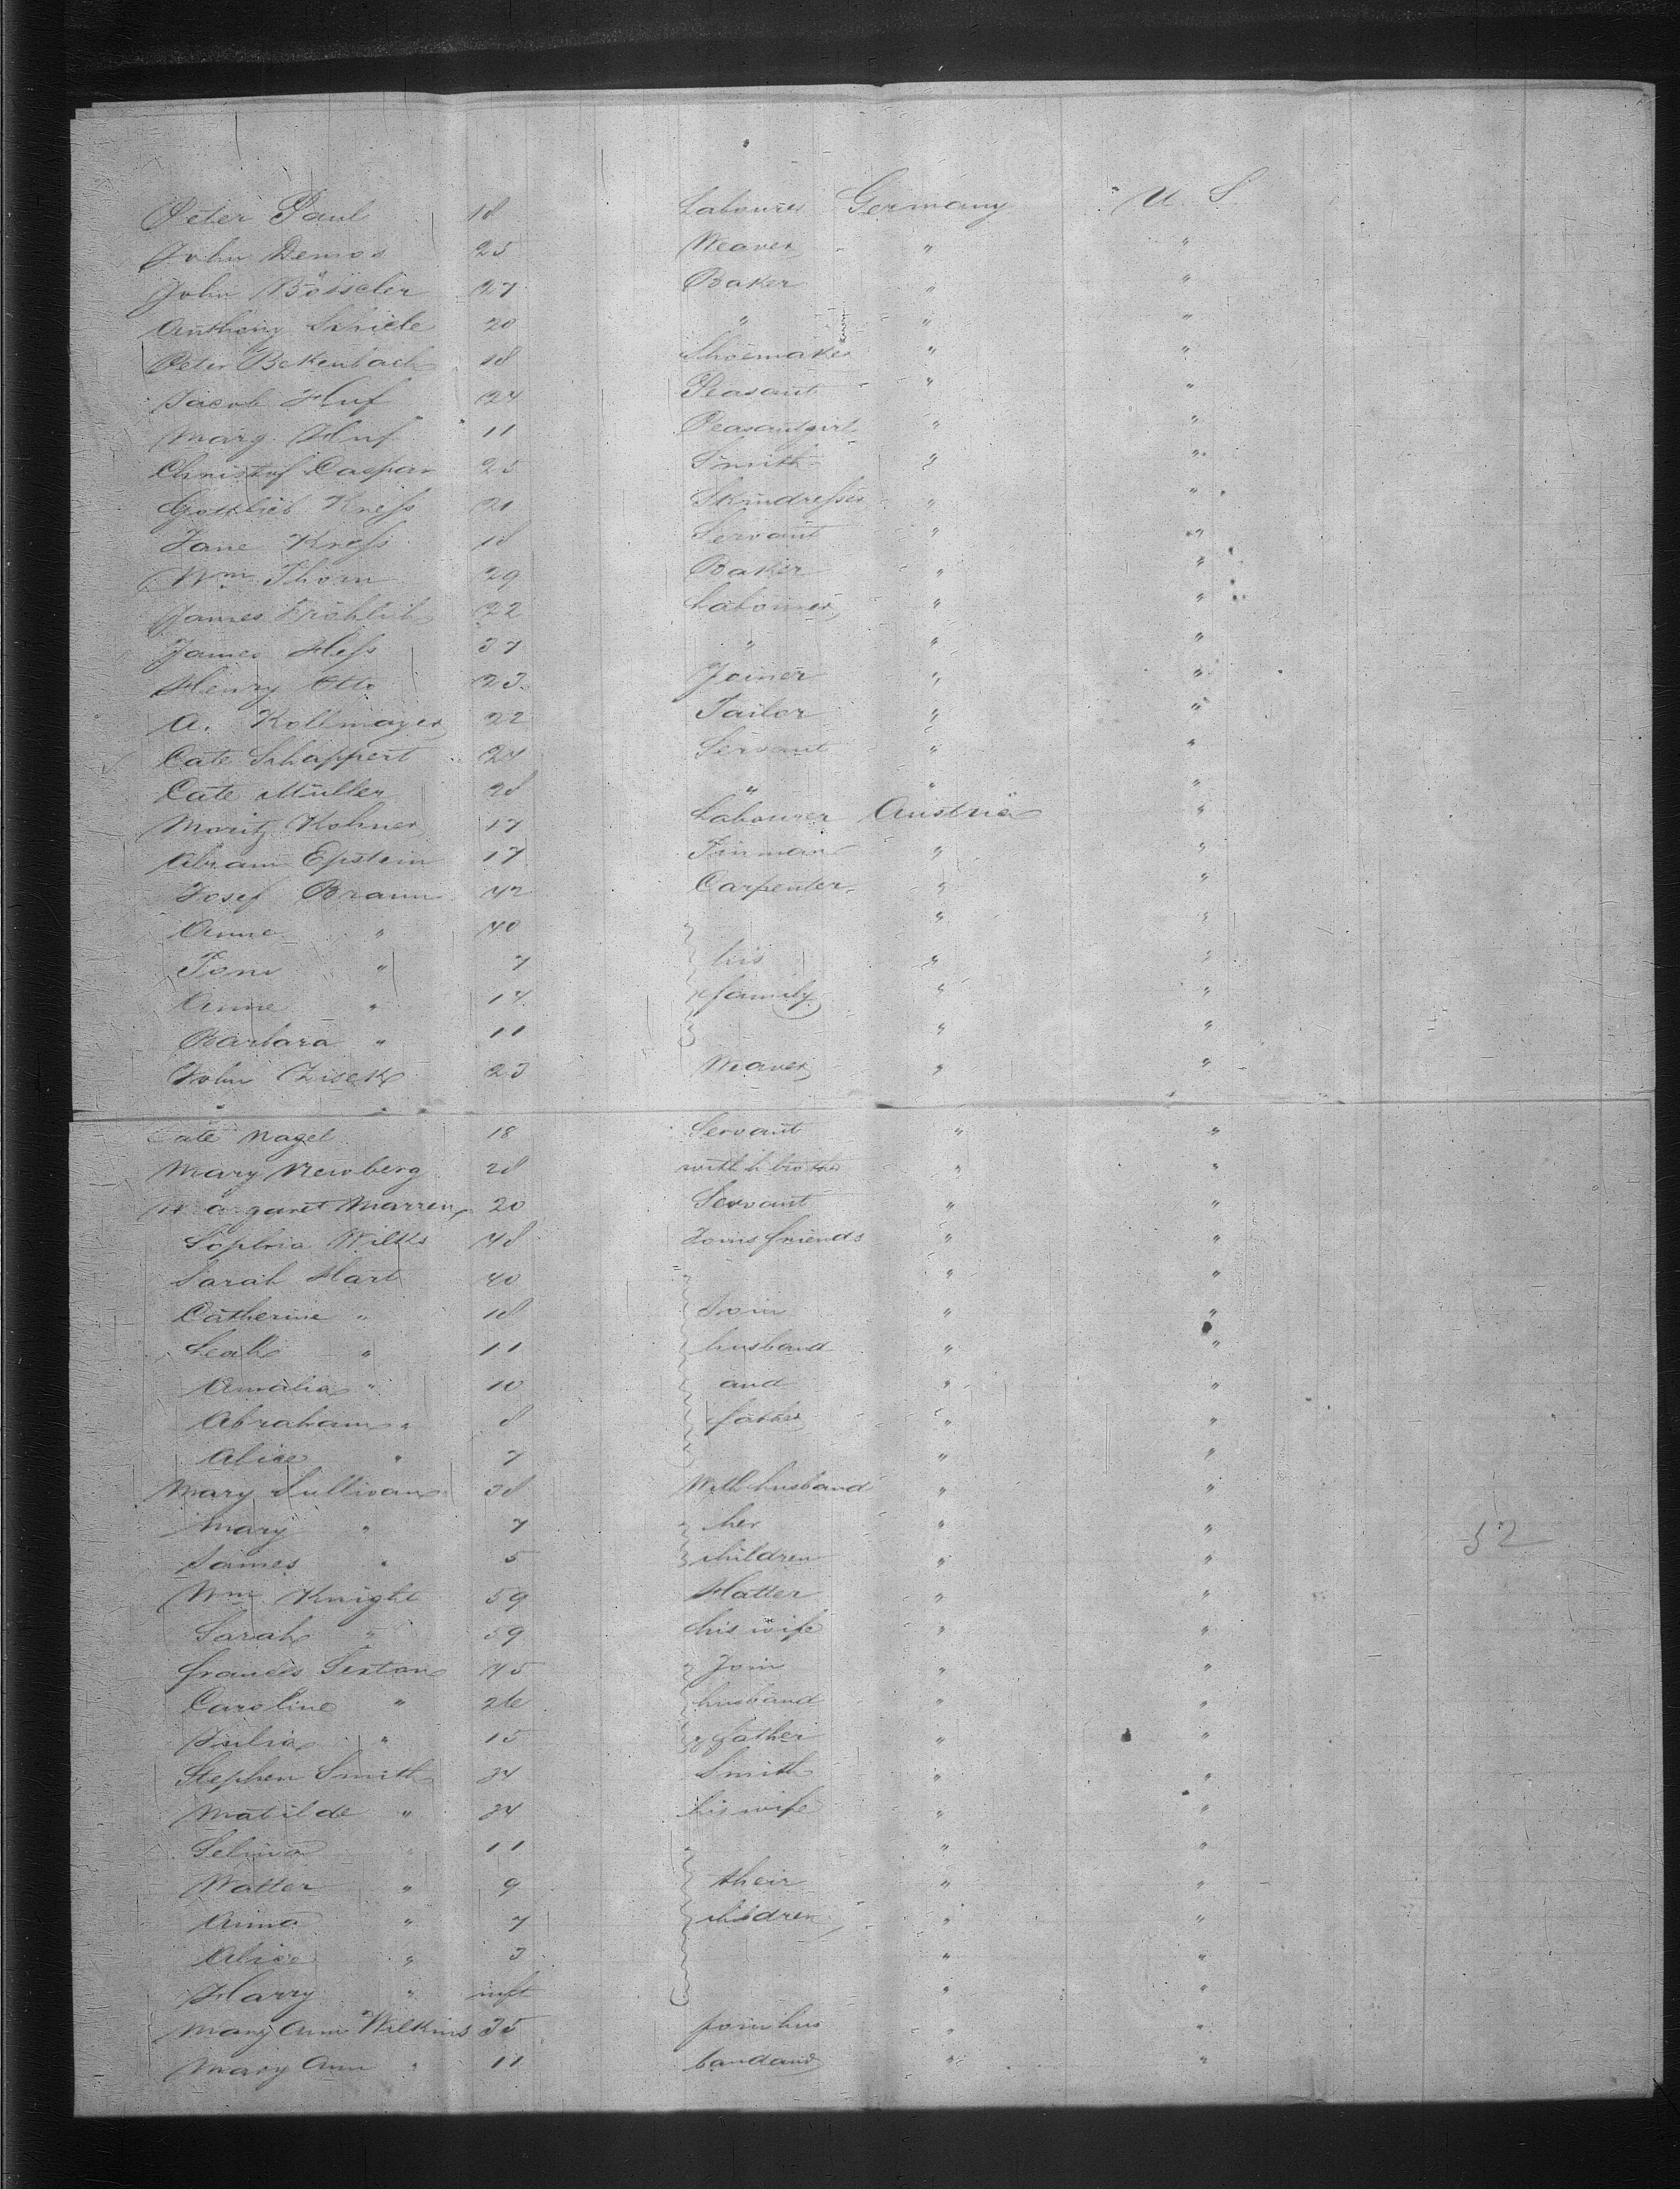 Peter Paul 18 Labourer Germany U. S.
John Demos 25 Weaver " "
John Bösseler 27 Baker " "
Anthony Schiele 20 " " "
Peter Bekenbach 18 Shoemaker " "
Jacob Huf 24 Peasant " "
Marg. Huf 11 Peasantgirl " "
Christof Caspar 25 Smith " "
Gottlieb Kress 21 Skindresser " "
Jane Kress 18 Servant " "
Wm Thorn 29 Baker " "
James Fröhlich 22 Labourer " "
James Hess 37 " " "
Henry Otto 23 Joiner " "
A. Kollmayer 22 Tailor " "
Cate Schappert 24 Servant " "
Cate Müller 28 " " "
Moritz Kohner 17 Labourer Austria "
Abram Epstein 17 Tinman " "
Josef Braun 42 Carpenter " "
Anna " 40 " "
" 7 his " "
Anne " 14 family " "
Barbara " 11 " "
John Zisek 23 Weaver " "
Cate Nagel 18 Servant " "
Mary Newberg 28 with h brother " "
Margaret Marren 20 Servant " "
Sophia Wilks 48 Joins friends " "
Sarah Hart 40 " "
Catherine " 18 Join " "
Leah " 11 husband " "
Amalia " 10 and " "
Abraham " 8 father " "
Alice " 7 " "
Mary Sullivan 38 With husband " "
Mary " 7 her " "
James " 5 children " " 52
Wm Knight 59 Hatter " "
Sarah " 59 his wife " "
Frances Sexton 45 Join " "
Caroline " 26 husband " "
Julia " 15 & father " "
Stephen Smith 34 Smith " "
Matilde " 34 his wife " "
Selina " 11 " "
Walter " 9 their " "
Anna " 7 children " "
Alice " 3 " "
Harry " inft " "
Mary Ann Wilkins 35 join hus " "
Mary Ann " 11 band and " "